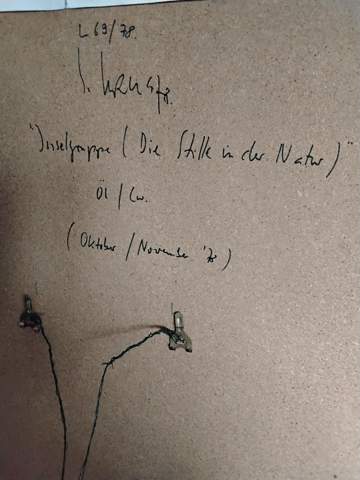 L 69/78.
"Inselgruppe (Die Stille in der Natur)"
Öl / Lw.
(Oktober / November '78)